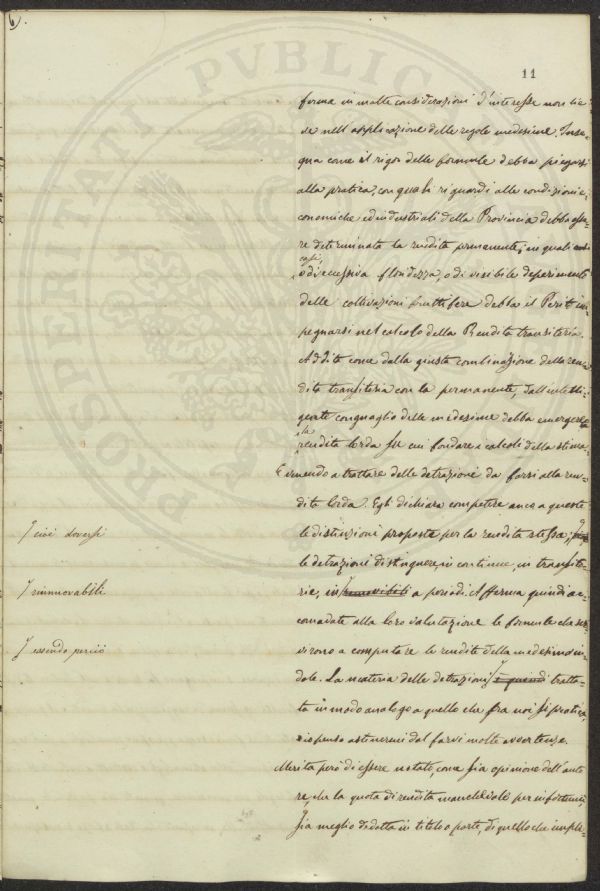 6)
11
forma in molte considerazioni d'interesse non lie-
ve nell'applicazione delle regole medesime. Inse-
gna come il rigor delle formule debba piegarsi
alla pratica, con quali riguardi alle condizioni e-
conomiche ed industriali della Provincia debba esse-
re determinata la rendita permanente; in quali
casi,
o di eccessiva floridezza, o di visibile deperimento
delle coltivazioni fruttifere debba il Perito im-
pegnarsi nel calcolo della Rendita transitoria.
Addita come dalla giusta combinazione della ren-
dita transitoria con la permanente, dall'intelli-
gente conguaglio delle medesime debba emergere
la
rendita lorda su cui fondare i calcoli della stima.
E venendo a trattare delle detrazioni da farsi alla ren-
dita lorda. Egli dichiara competere anco a queste
le distinzioni proposte per la rendita stessa;
⌈ cioè doversi
le detrazioni distinguere in continue, in transito-
⌈ rinnovabili
rie, in rinnovabili a periodi. Afferma quindi ac-
comodate alla loro valutazione le formule che ser-
virono a computare le rendite della medesima in-
⌈ essendo perciò
dole. La materia delle detrazioni è quindi tratta-
ta in modo analogo a quello che fra noi si pratica,
io penso astenermi dal farvi molte avvertenze.
Merita però di essere notato, come sia opinione dell'auto-
re, che la quota di rendita manchevole per infortuni,
sia meglio dedotta in titolo a parte, di quello che imple-
PROSPERITATI PVBLICAE